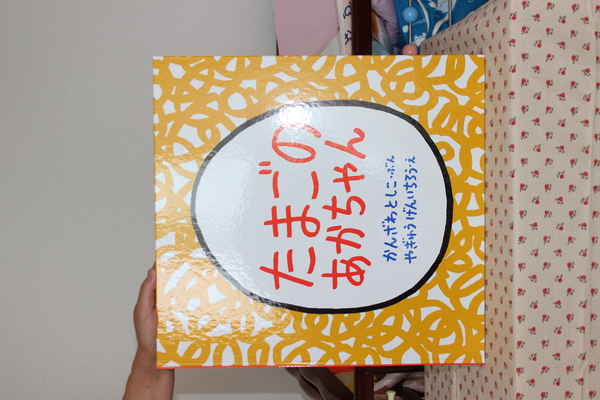 たまごの
あかちゃん
かんざわとしこ・ぶん
やぎゅうげんいちろう・え